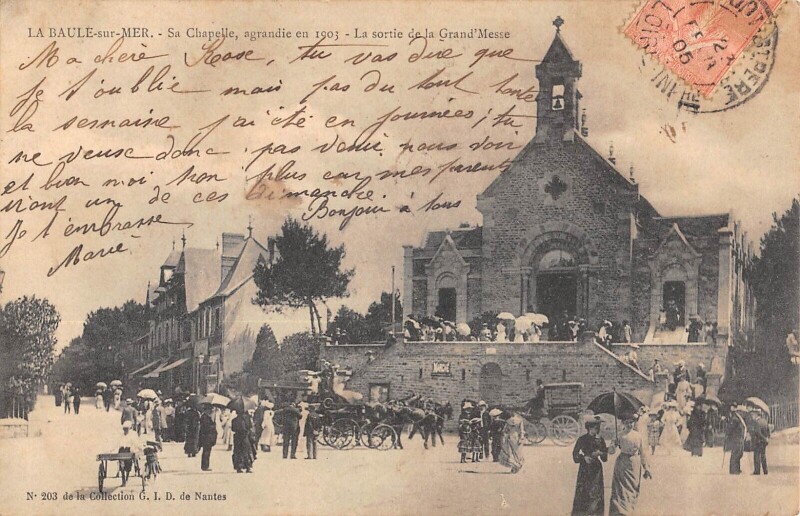 LA BAULE-sur-MER. - Sa Chapelle, agrandie en 1903 - La sortie de la Grand'Messe
Ma chère Rose, tu vas dire que
je t'oublie mais pas du tout toute
la semaine j'ai été en journées; tu
ne veux donc pas venir nous voir
et bien moi non plus car mes parents
vront un de ces dimanche.
Bonjour à tous
Je t'embrasse
Marie
N° 203 de la Collection G. I. D. de Nantes